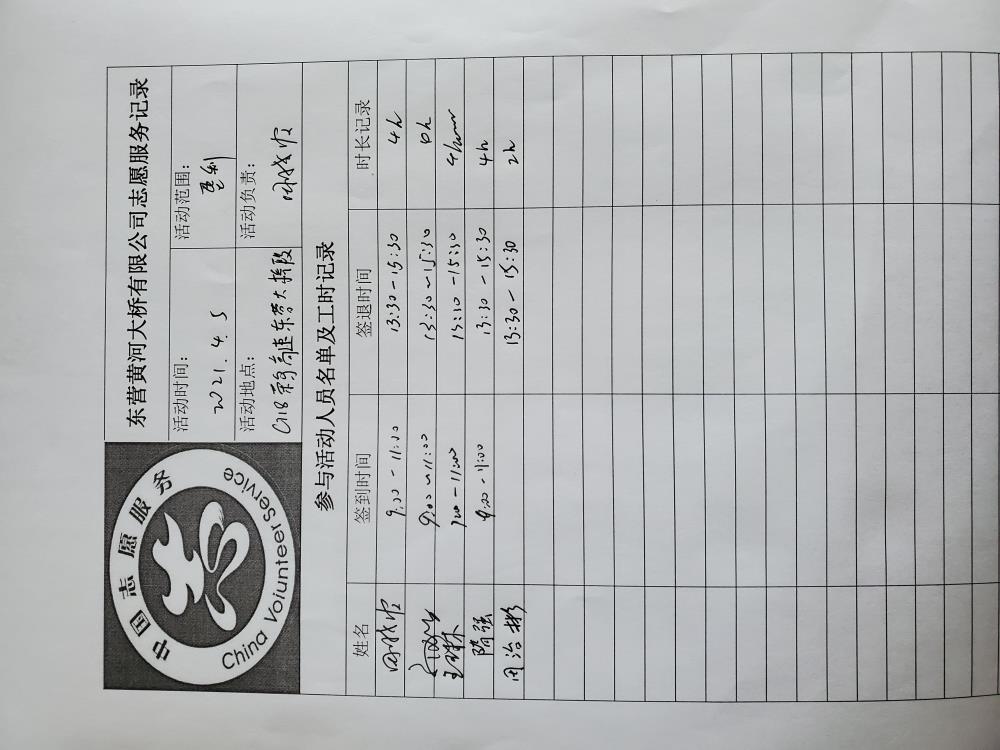 中国志愿服务
China Voiunteer Service
东营黄河大桥有限公司志愿服务记录
活动时间: 2021.4.5
活动范围:
活动地点: G18荣乌高速东营大桥段
活动负责:
参与活动人员名单及工时记录
姓名 签到时间 签退时间 时长记录
9:00-11:00 13:30-15:30 4h
9:00~11:00 13:30~15:30
王琳 -11:00 -15:30
隋强 9:00-11:00 13:30-15:30 4h
周治彬 13:30-15:30 2h